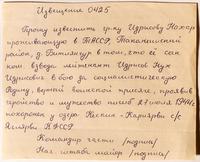 Извещение 0425
Прошу известить гр-ку Идрисову Нахар
проживающую в ТАССР, Таканышский
район, д. Битаман в том, что её сын
ком. взвода лейтенант Идрисов Нух
Идрисович в бою за социалистическую
Родину, верный воинской присяге, проявив
геройство и мужество погиб 27 июля 1944г.
похоронен у озера Кеския - Карнярви с/с
Ялгярви КФССР
Командир части /подпись/
Нач. штаба майор /подпись/